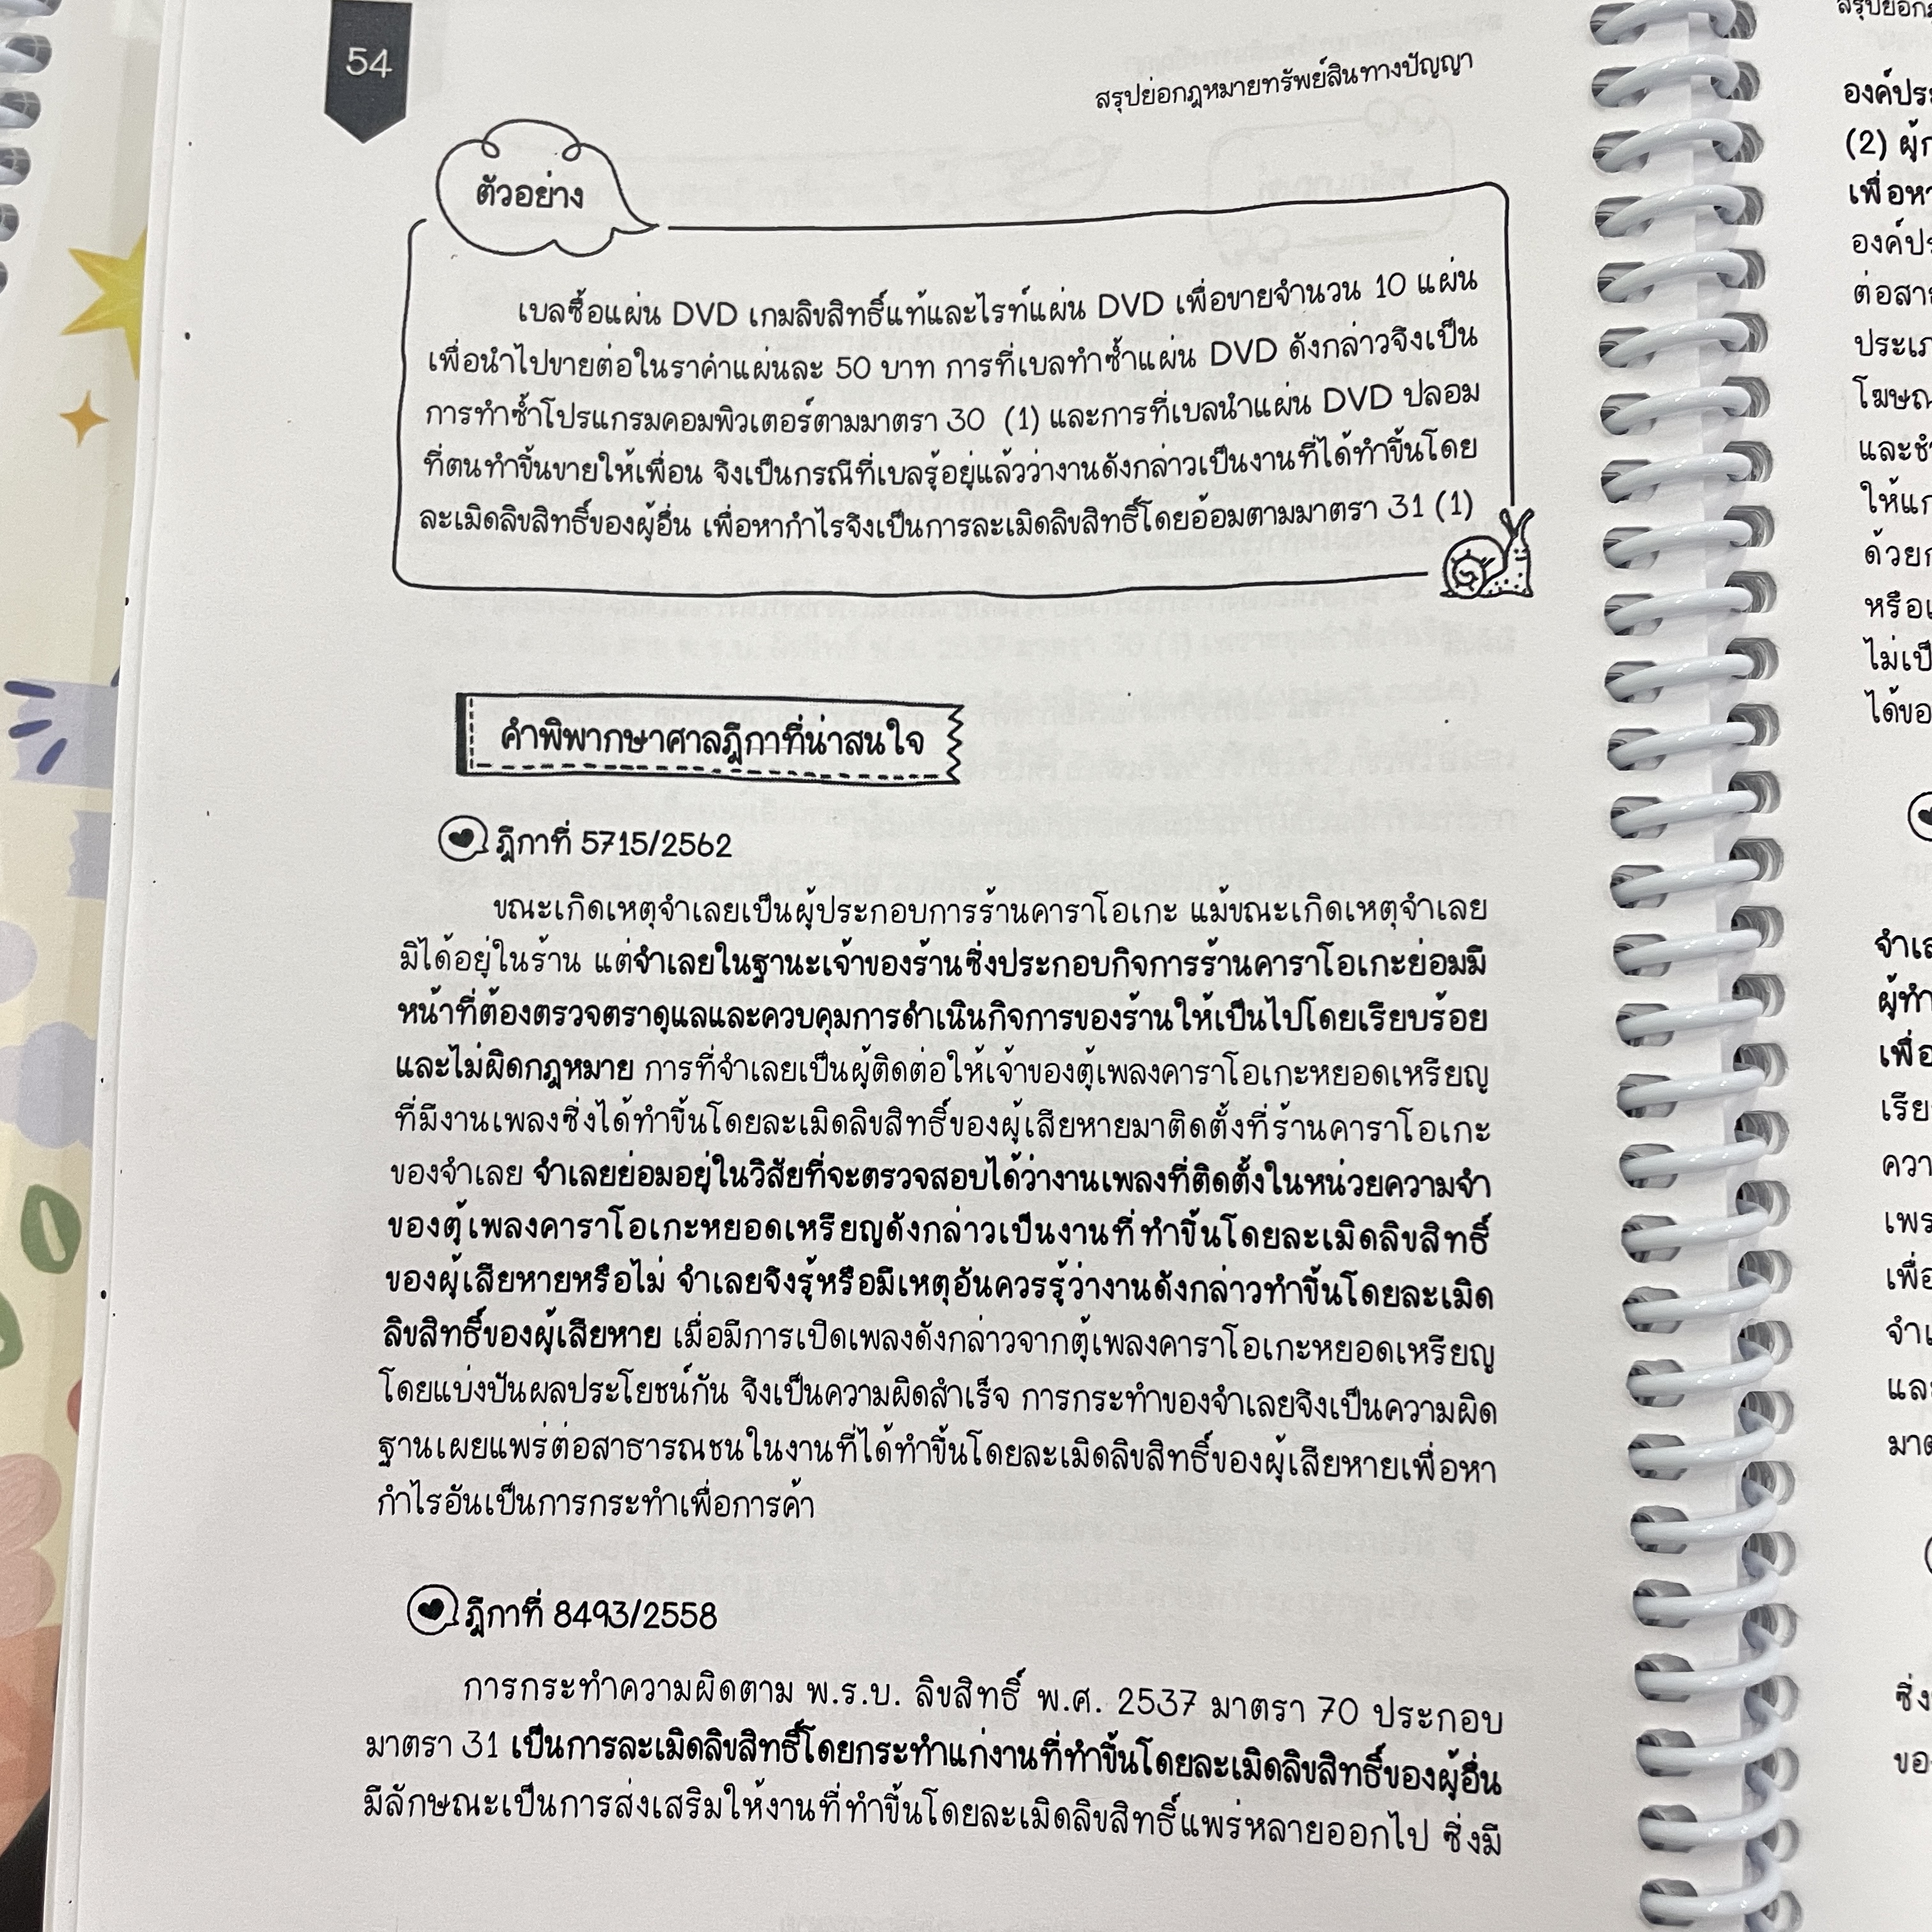 54
สรุปย่อกฎหมายทรัพย์สินทางปัญญา
ตัวอย่าง
เบลซื้อแผ่น DVD เกมลิขสิทธิ์แท้และไรท์แผ่น DVD เพื่อขายจำนวน 10 แผ่น
เพื่อนำไปขายต่อในราคำแผ่นละ 50 บาท การที่เบลทำซ้ำแผ่น DVD ดังกล่าวจึงเป็น
การทำซ้ำโปรแกรมคอมพิวเตอร์ตามมาตรา 30 (1) และการที่เบลนำแผ่น DVD ปลอม
ที่ตนทำขึ้นขายให้เพื่อน จึงเป็นกรณีที่เบลรู้อยู่แล้วว่างานดังกล่าวเป็นงานที่ได้ทำขึ้นโดย
ละเมิดลิขสิทธิ์ของผู้อื่น เพื่อหากำไรจึงเป็นการละเมิดลิขสิทธิ์โดยอ้อมตามมาตรา 31 (1)
คำพิพากษาศาลฎีกาที่น่าสนใจ
ฎีกาที่ 5715/2562
ขณะเกิดเหตุจำเลยเป็นผู้ประกอบการร้านคาราโอเกะ แม้ขณะเกิดเหตุจำเลย
มิได้อยู่ในร้าน แต่จำเลยในฐานะเจ้าของร้านซึ่งประกอบกิจการร้านคาราโอเกะย่อมมี
หน้าที่ต้องตรวจตราดูแลและควบคุมการดำเนินกิจการของร้านให้เป็นไปโดยเรียบร้อย
และไม่ผิดกฎหมาย การที่จำเลยเป็นผู้ติดต่อให้เจ้าของตู้เพลงคาราโอเกะหยอดเหรียญ
ที่มีงานเพลงซึ่งได้ทำขึ้นโดยละเมิดลิขสิทธิ์ของผู้เสียหายมาติดตั้งที่ร้านคาราโอเกะ
ของจำเลย จำเลยย่อมอยู่ในวิสัยที่จะตรวจสอบได้ว่างานเพลงที่ติดตั้งในหน่วยความจำ
ของตู้เพลงคาราโอเกะหยอดเหรียญดังกล่าวเป็นงานที่ทำขึ้นโดยละเมิดลิขสิทธิ์
ของผู้เสียหายหรือไม่ จำเลยจึงรู้หรือมีเหตุอันควรรู้ว่างานดังกล่าวทำขึ้นโดยละเมิด
ลิขสิทธิ์ของผู้เสียหาย เมื่อมีการเปิดเพลงดังกล่าวจากตู้เพลงคาราโอเกะหยอดเหรียญ
โดยแบ่งปันผลประโยชน์กัน จึงเป็นความผิดสำเร็จ การกระทำของจำเลยจึงเป็นความผิด
ฐานเผยแพร่ต่อสาธารณชนในงานที่ได้ทำขึ้นโดยละเมิดลิขสิทธิ์ของผู้เสียหายเพื่อหา
กำไรอันเป็นการกระทำเพื่อการค้า
ฎีกาที่ 8493/2558
การกระทำความผิดตาม พ.ร.บ. ลิขสิทธิ์ พ.ศ. 2537 มาตรา 70 ประกอบ
มาตรา 31 เป็นการละเมิดลิขสิทธิ์โดยกระทำแก่งานที่ทำขึ้นโดยละเมิดลิขสิทธิ์ของผู้อื่น
มีลักษณะเป็นการส่งเสริมให้งานที่ทำขึ้นโดยละเมิดลิขสิทธิ์แพร่หลายออกไป ซึ่งมี